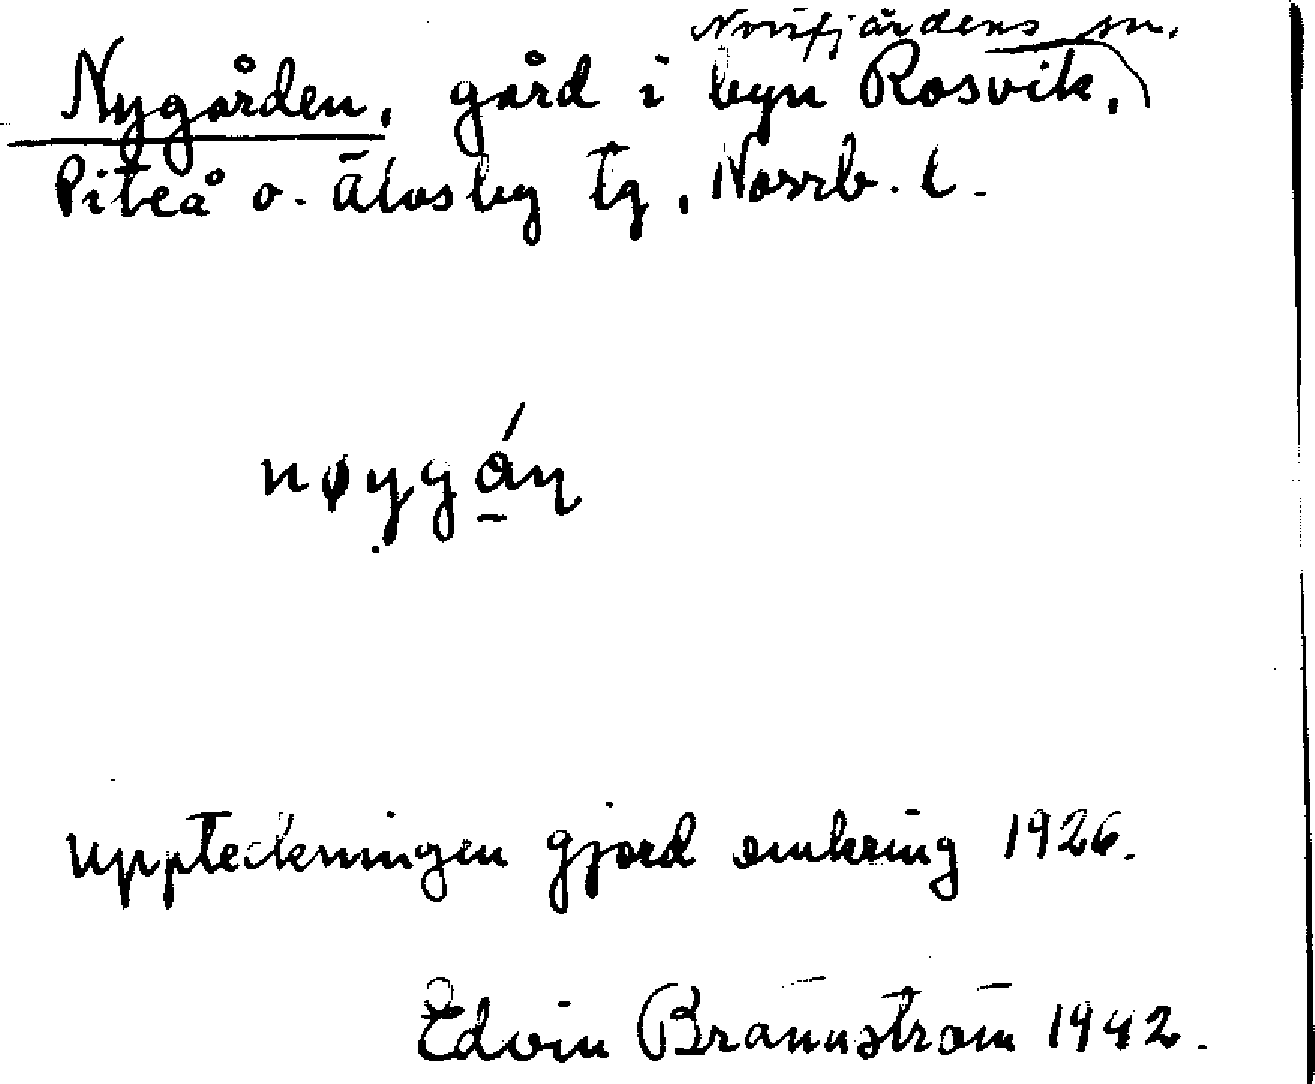 Norrfjärdens sn.
Nygården, gård i byn Rosvik,
Piteå o. Älvsby tg, Norrb. l.
nøygán
Uppteckningen gjord omkring 1926.
Edvin Brännström 1942.